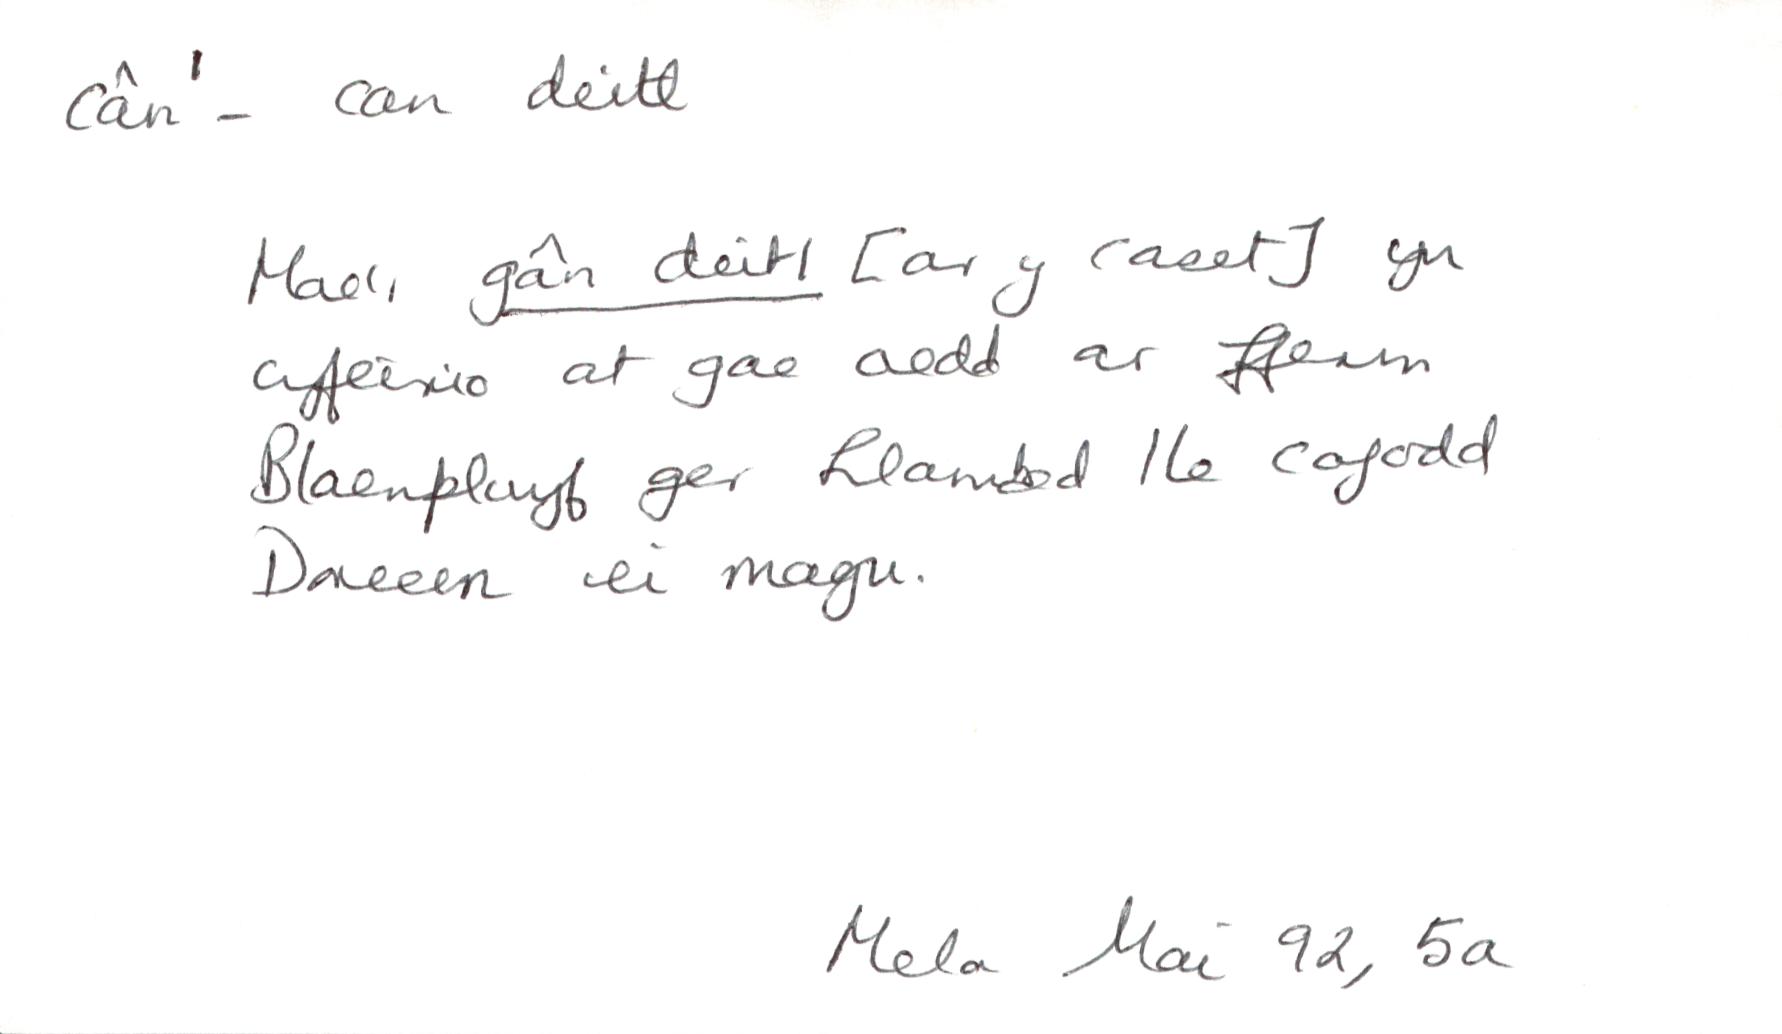 cân¹ - can deitl
Mae'r gân deitl [ar y caset] yn
cyfeirio at gae aedd ar fferm
Blaenplwyf ger Llambed lle cafodd
Doreen ei magu.
Mela Mai 92, 5a